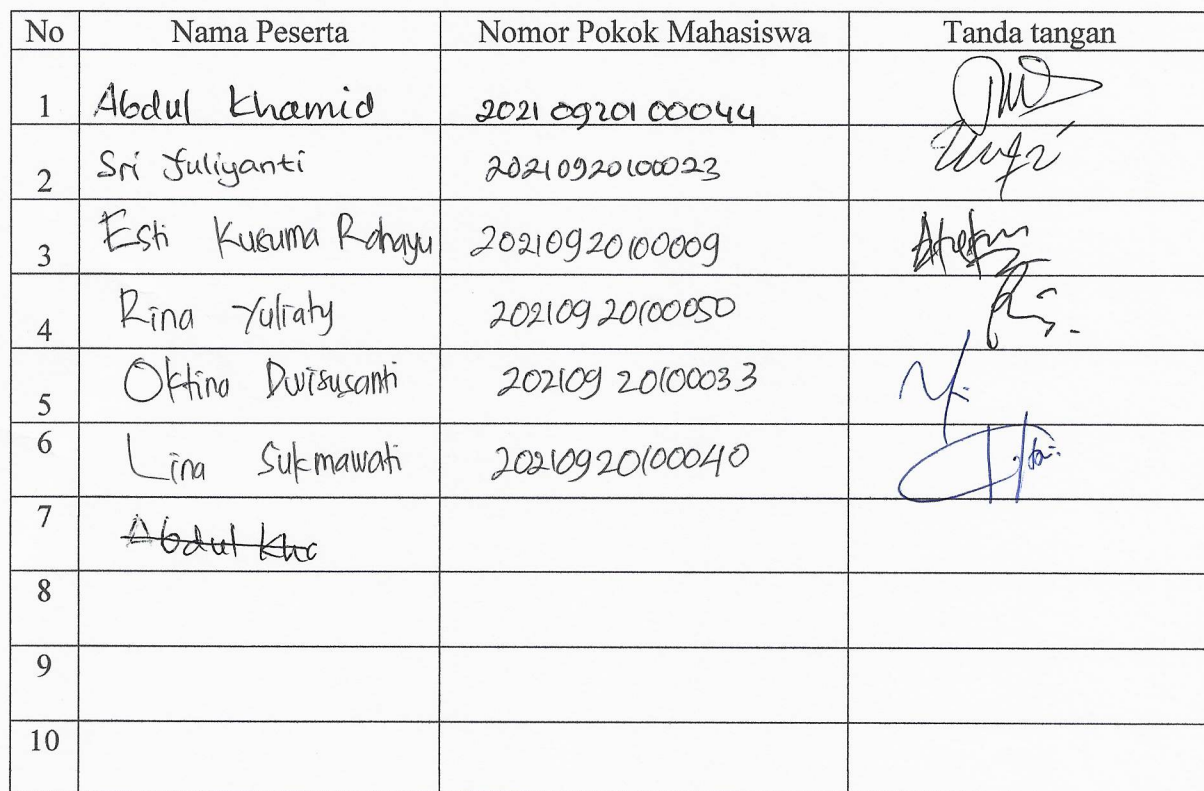 No Nama Peserta Nomor Pokok Mahasiswa Tanda tangan
1 Abdul Khamid 202109201 00044
2 Sri Yuliyanti 20210920100023
3 Esti Kusuma Rahayu 20210920100009
4 Rina Yuliaty 202109 20100050
5 Oktina Dwisusanti 202109 20100033
6 Lina Sukmawati 20210920100040
7 Abdul Kha
8
9
10